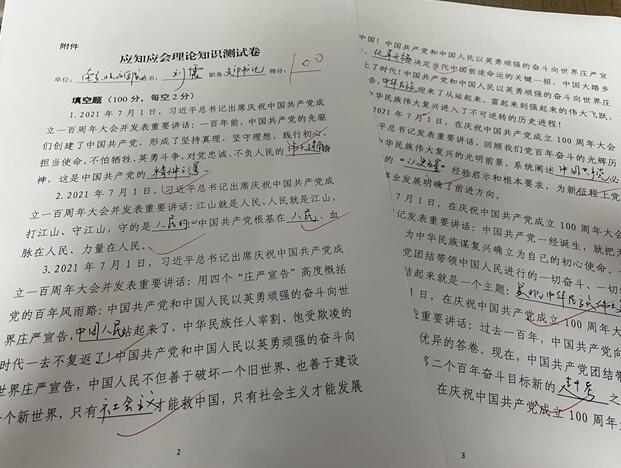 附件
应知应会理论知识测试卷
单位: 姓名: 刘 职务: 支部书记 得分: 100
填空题(100分,每空2分)
1.2021年7月1日,习近平总书记出席庆祝中国共产党成
立一百周年大会并发表重要讲话:一百年前,中国共产党的先驱
们创建了中国共产党,形成了坚持真理、坚守理想,践行初心、
担当使命,不怕牺牲、英勇斗争,对党忠诚、不负人民的
神,这是中国共产党的 精神之源
2.2021年7月1日,习近平总书记出席庆祝中国共产党成
立一百周年大会并发表重要讲话:江山就是人民、人民就是江山,
打江山、守江山,守的是 人民的 中国共产党根基在 人民、血
脉在人民、力量在人民。
3.2021年7月1日,习近平总书记出席庆祝中国共产党成
立一百周年大会并发表重要讲话:用四个“庄严宣告”高度概括
党的百年风雨路:中国共产党和中国人民以英勇顽强的奋斗向世
界庄严宣告,中国人民站起来了,中华民族任人宰割、饱受欺凌的
时代一去不复返了!中国共产党和中国人民以英勇顽强的奋斗向
世界庄严宣告,中国人民不但善于破坏一个旧世界、也善于建设
一个新世界,只有 社会主义 才能救中国,只有社会主义才能发展
2
中国!中国共产党和中国人民以英勇顽强的奋斗向世界庄严宣
改革开放 决定当代中国前途命运的关键一招,中国大踏步
上了时代!中国共产党和中国人民以英勇顽强的奋斗向世界庄
告,中华民族 迎来了从站起来、富起来到强起来的伟大飞跃,
华民族伟大复兴进入了不可逆转的历史进程!
2021年7月1日,在庆祝中国共产党成立100周年大会
平总书记发表重要讲话,回顾我们党百年奋斗的光辉历
华民族伟大复兴的光明前景,系统阐述 中国共产党 必
的“以史为鉴”经验启示和根本要求,为新征程上党
事业发展明确了前进方向。
7月1日,在庆祝中国共产党成立100周年大会
记发表重要讲话:中国共产党一经诞生,就把为
为中华民族谋复兴确立为自己的初心使命。一
党团结带领中国人民进行的一切奋斗、一切
结起来就是一个主题:
1日,在庆祝中国共产党成立100周年大
重要讲话:过去一百年,中国共产党向
优异的答卷。现在,中国共产党团结带
第二个百年奋斗目标新的 赶考 之
在庆祝中国共产党成立100周年大
3